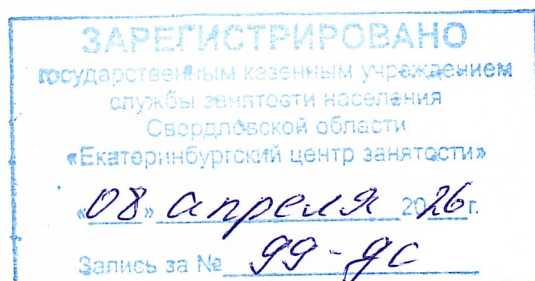 ЗАРЕГИСТРИРОВАНО
государственным казенным учреждением
службы занятости населения
Свердловской области
«Екатеринбургский центр занятости»
«08» апреля 2026 г.
Запись за № 99-дс